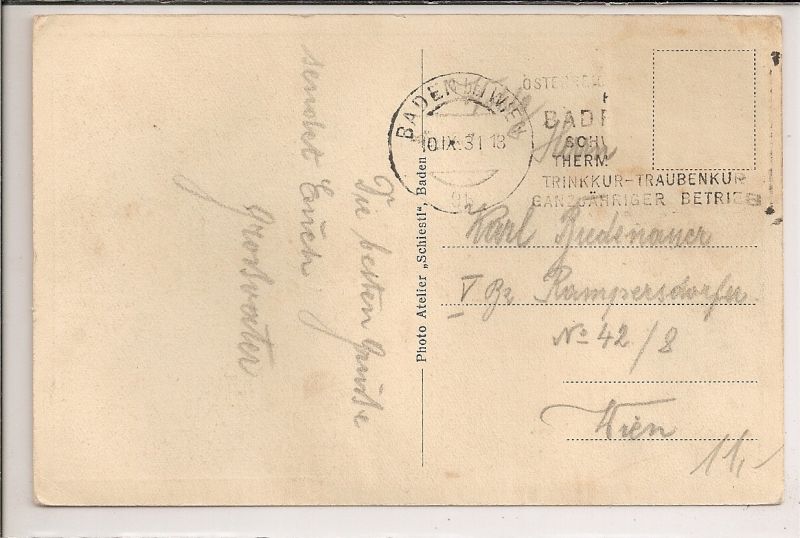 Die besten Grüße
sendet Euch
Großvater
Photo Atelier „Schiestl“, Baden
BADEN BEI WIEN
IX.31 18
ÖSTERREI
BAD
SCHW
THERM
TRINKKUR-TRAUBENKUR
GANZJÄHRIGER BETRIEB
Herrn
Karl
V Bz Rampersdorfer
No 42/8
Wien
11,-